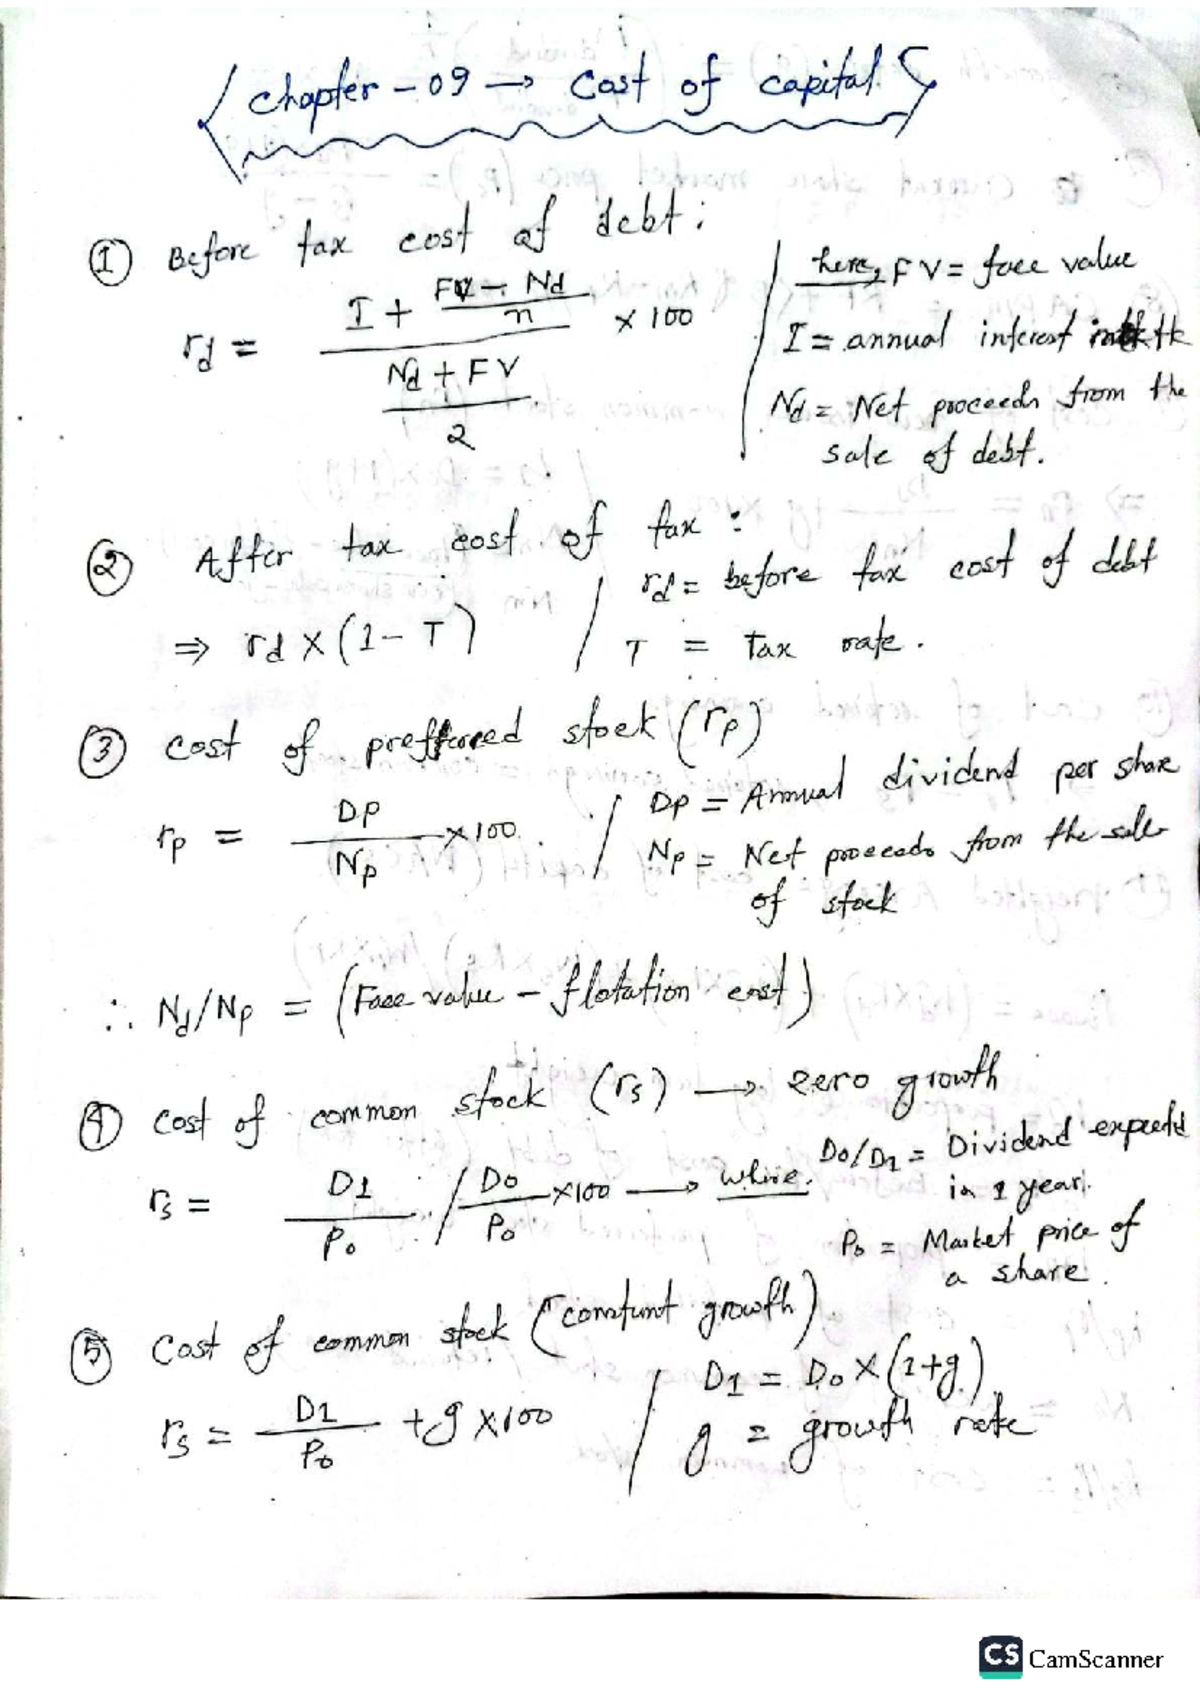 Chapter-09 → Cost of capital
① Before tax cost of debt:
rd = (I + (FV - Nd)/n) / ((Nd + FV)/2) × 100
here, FV = face value
I = annual interest
Nd = Net proceeds from the
sale of debt.
② After tax cost of tax:
⇒ rd × (1 - T)
rd = before tax cost of debt
T = Tax rate.
③ Cost of preffereed stock (rp)
rp = Dp/Np × 100
Dp = Annual dividend per share
Np = Net proceeds from the sale
of stock
∴ Nd/Np = (Face value - flotation cost)
④ Cost of common stock (rs) → zero growth
rs = D1/P0 / D0/P0 × 100 → where.
D0/D1 = Dividend expected
in 1 year.
P0 = Market price of
a share.
⑤ Cost of common stock (constant growth)
rs = D1/P0 + g × 100
D1 = D0 × (1+g)
g = growth rate
CS CamScanner